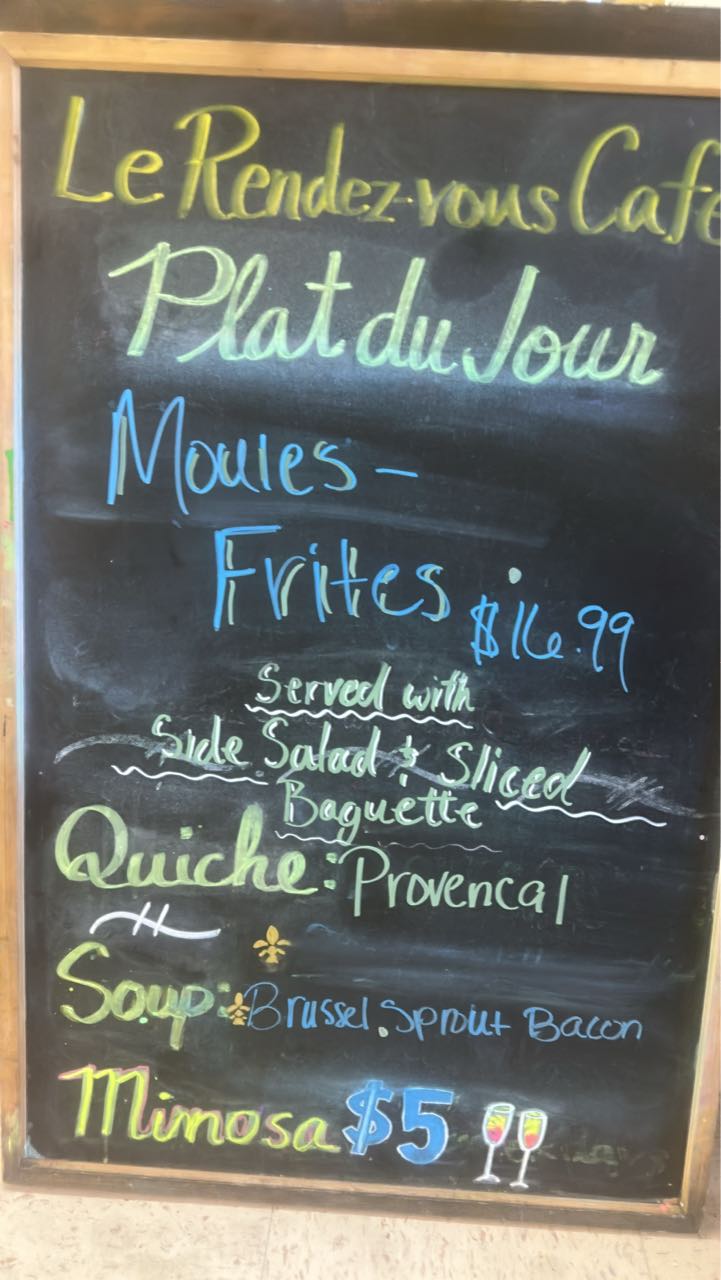 Le Rendez-vous Café
Plat du Jour
Moules -
Frites $16.99
Served with
Side Salad & Sliced
Baguette
Quiche: Provencal
Soup: Brussel Sprout Bacon
Mimosa $5